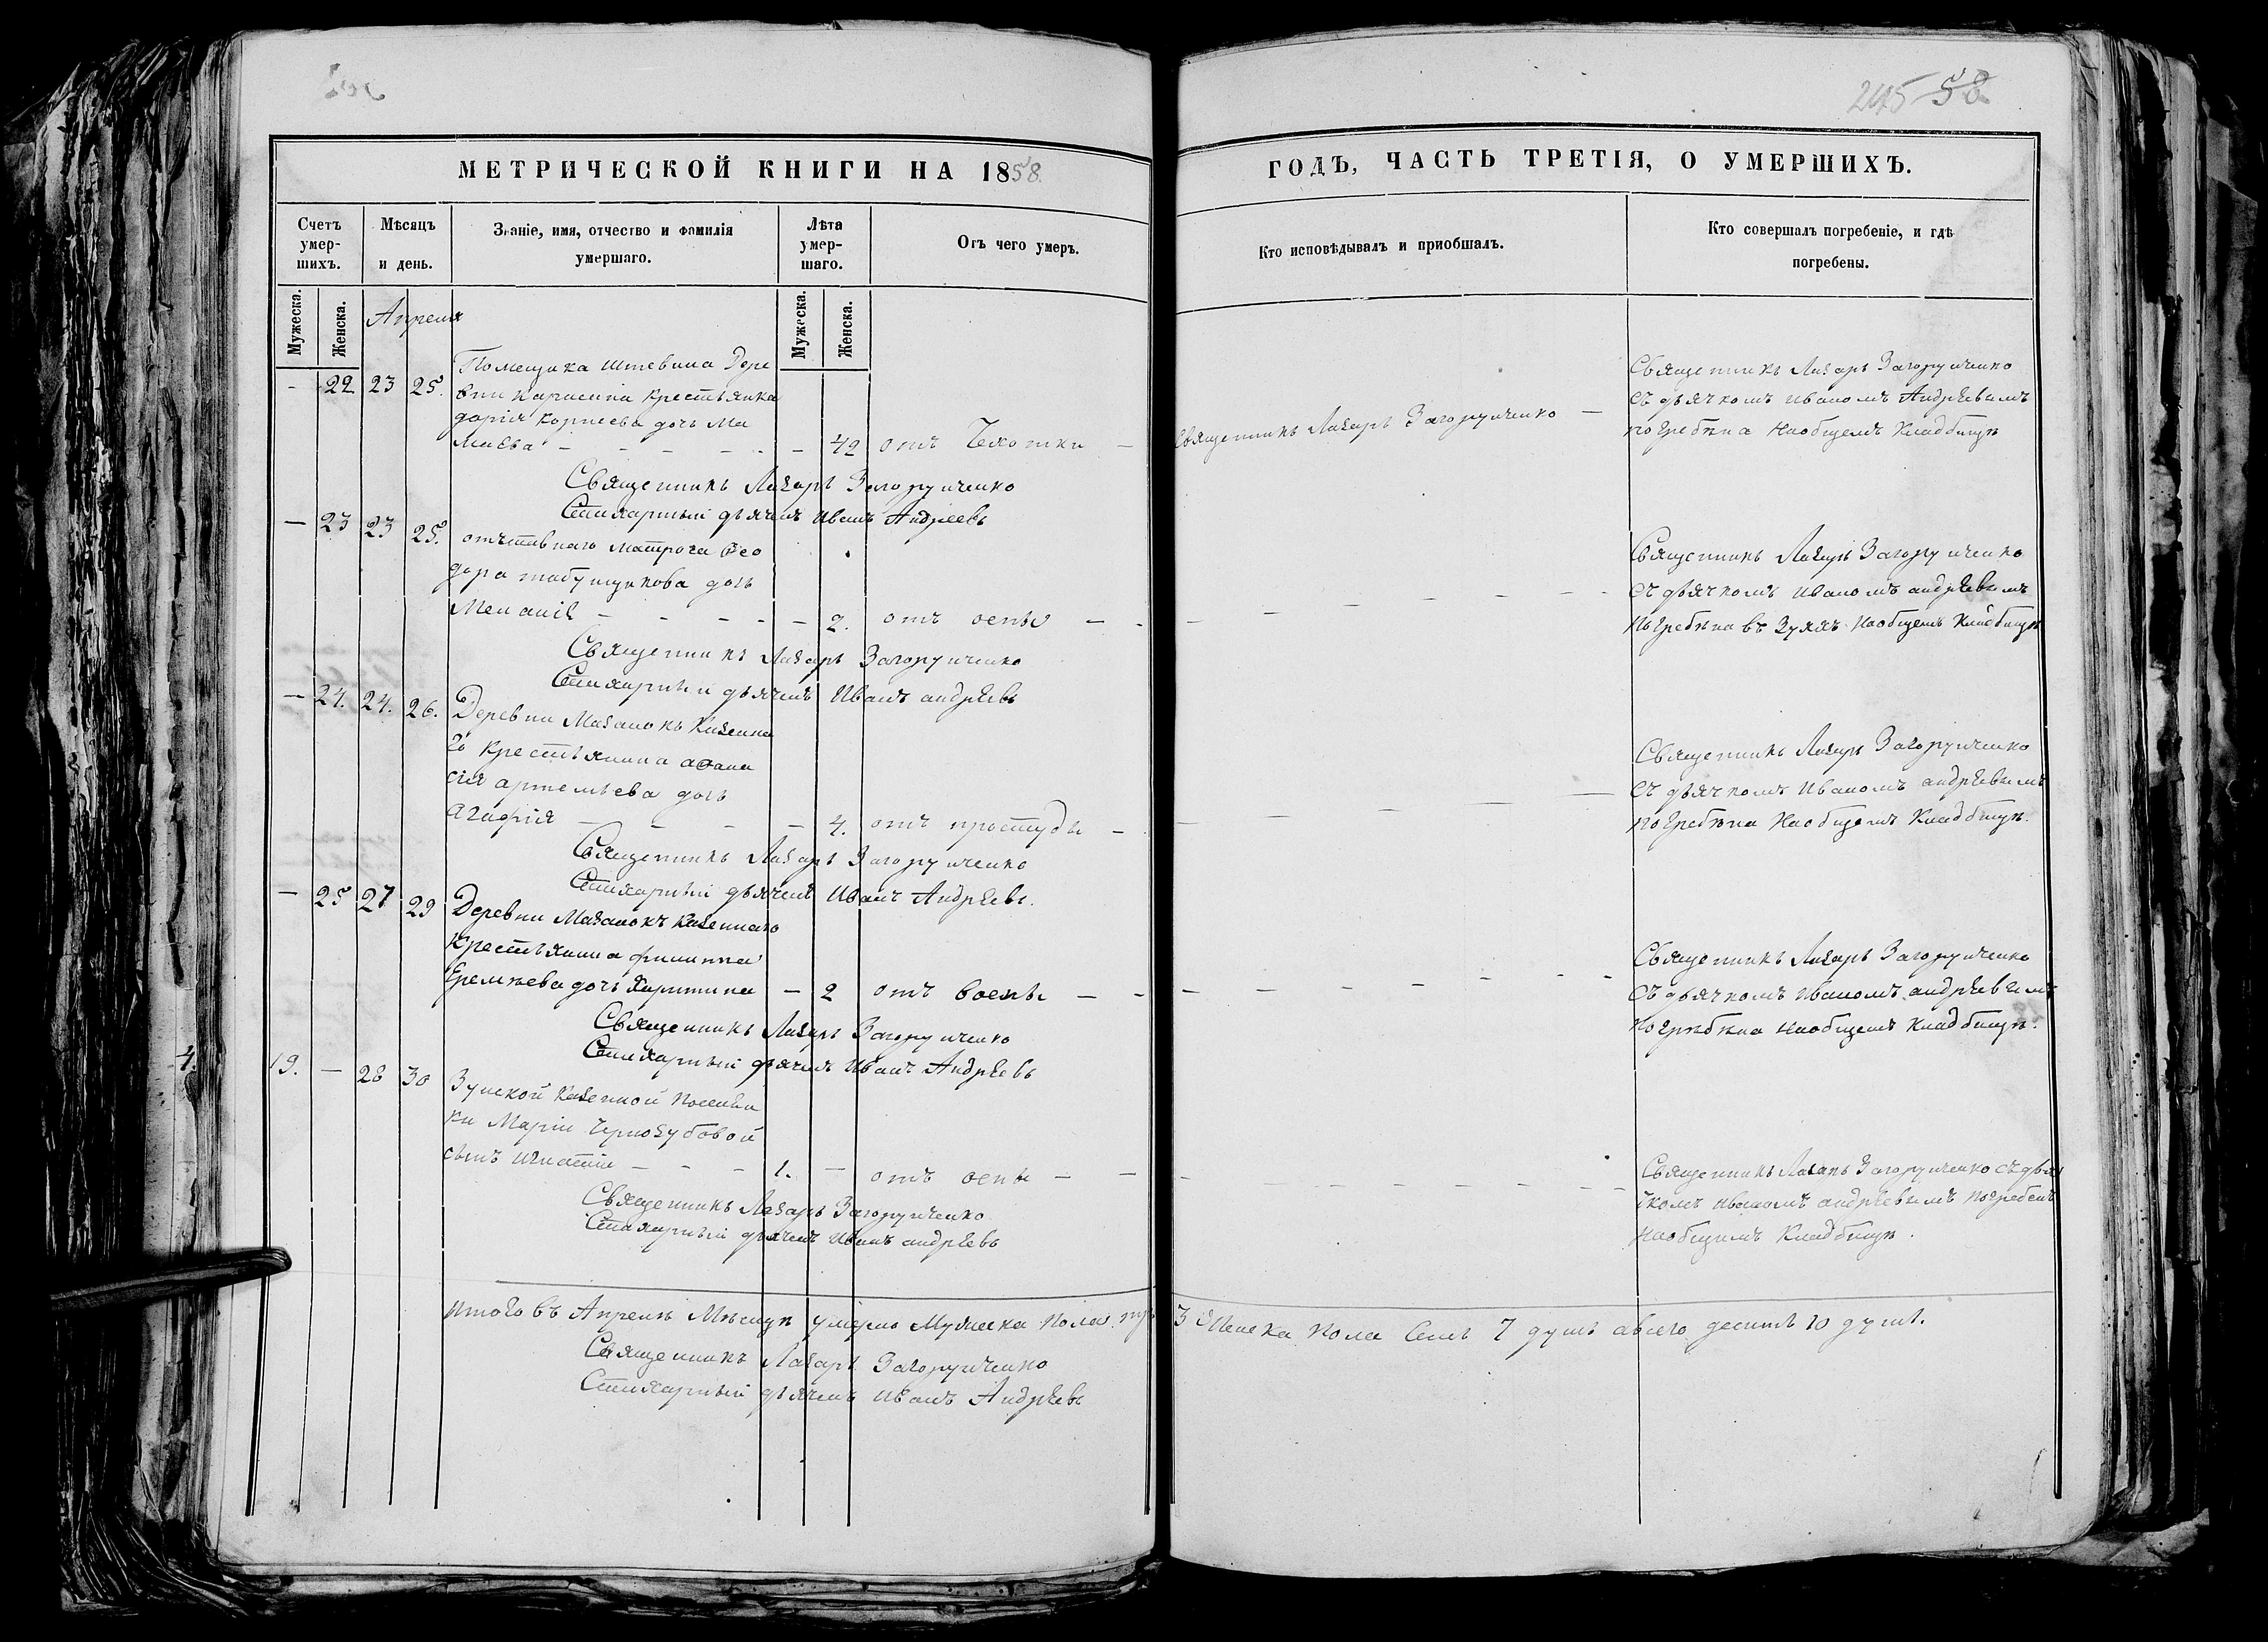 245 58
МЕТРИЧЕСКОЙ КНИГИ НА 1858
ГОДЪ, ЧАСТЬ ТРЕТІЯ, О УМЕРШИХЪ.
Счетъ умер-шихъ.
Мѣсяцъ и день.
Званіе, имя, отчество и фамилія умершаго.
Лѣта умер-шаго.
Отъ чего умеръ.
Кто исповѣдывалъ и пріобщалъ.
Кто совершалъ погребеніе, и гдѣ погребены.
Мужеска.
Женска.
Апреля
Мужеска.
Женска.
- 22 23 25.
Помещика Штевина Дере
вни Карасина крестьянка
дарія Корнеева дочь Ма
маева - - - - - - 42 отъ Чехотки -
Священникъ Лазарь Загоруиченко -
Священникъ Лазарь Загоруиченко
съ дьячкомъ Иваномъ Андрѣевымъ
погребѣна наобщемъ Кладбищѣ
Священникъ Лазарь Загоруиченко
Стихарный дьячекъ Иванъ Андреевъ
- 23 23 25.
отъставнаго матроса Ѳео
дора табунщикова дочь
Меланія - - - - - 2. отъ оспы - -
Священникъ Лазарь Загоруиченко
съ дьячкомъ Иваномъ андрѣевымъ
погребѣна въ Зуяхъ наобщемъ Кладбищѣ
Священникъ Лазарь Загоруиченко
Стихарный дьячекъ Иванъ андрѣевъ
- 24. 24. 26.
Деревни Мазанокъ Казенна
го крестьянина афана
сія артемьева дочь
агафія - - - - 4. отъ простуды -
Священникъ Лазарь Загоруиченко
съ дьячкомъ Иваномъ андрѣевымъ
погребѣна наобщемъ Кладбищѣ.
Священникъ Лазарь Загоруиченко
Стихарный дьячекъ Иванъ Андрѣевъ.
- 25 27 29
Деревни Мазанокъ казеннаго
крестьянина филиппа
Еремѣева дочь Харитина - 2 отъ воспы - -
Священникъ Лазарь Загоруиченко
съ дьячкомъ Иваномъ андрѣевымъ
погрѣбѣна наобщемъ Кладбищѣ.
Священникъ Лазарь Загоруиченко
Стихарный дьячекъ Иванъ Андрѣевъ
19. - 28 30
Зуйской казенной поселян
ки Маріи Чернозубовой
сынъ игнатій - - - 1. - отъ оспы - -
Священникъ Лазарь Загоруиченко съ дья
чкомъ иваномъ андрѣевымъ погребенъ
наобщемъ Кладбищѣ.
Священникъ Лазарь Загоруиченко
Стихарный дьячекъ Иванъ андрѣевъ
итого въ Апрелѣ Мѣсицѣ умерло Мужеска пола три 3 Женска пола Семь 7 душъ авсего десять 10 душъ.
Священникъ Лазарь Загоруиченко
Стихарный дьячекъ Иванъ Андрѣевъ